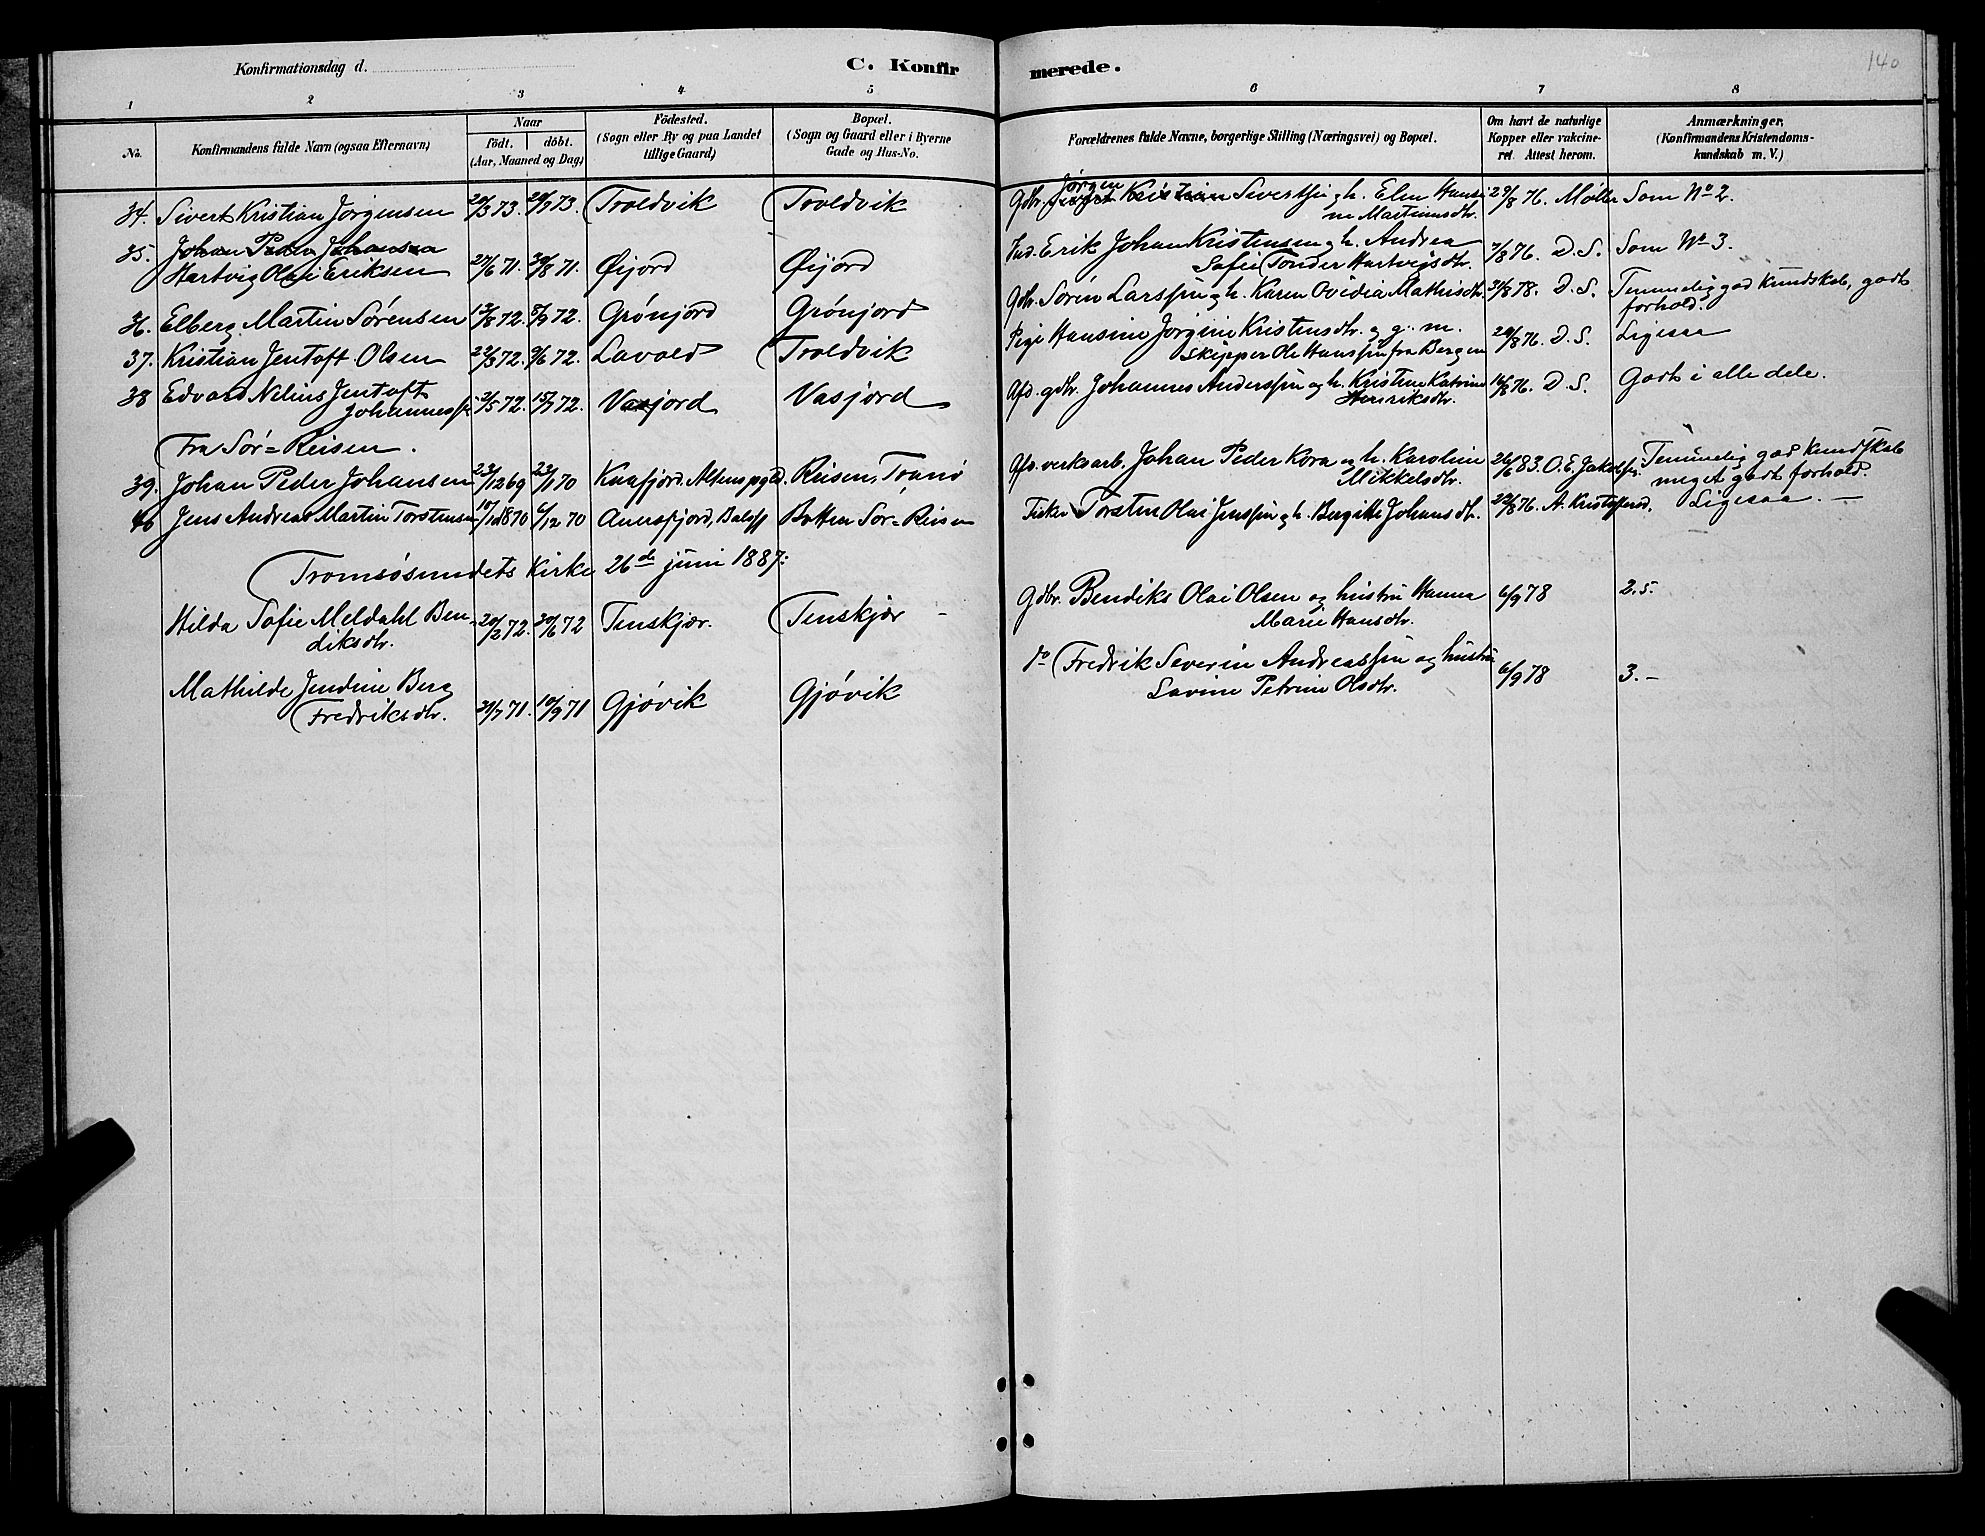 140
Konfirmationsdag d.
C. Konfirmerede.
1 2 3 4 5 6 7 8
No.
Konfirmandens fulde Navn (ogsaa Efternavn)
Naar
födt. döbt.
(Aar, Maaned og Dag)
Födested.
(Sogn eller By og paa Landet
tillige Gaard)
Bopæl.
(Sogn og Gaard eller i Byerne
Gade og Hus-No.
Forældrenes fulde Navne, borgerlige Stilling (Næringsvei) og Bopæl.
Om havt de naturlige
Kopper eller vakcine-
ret. Attest herom.
Anmærkninger,
(Konfirmandens Kristendoms-
kundskab m. V.)
34. Sivert Kristian Jørgensen 73. 73. Troldvik Troldvik Gdbr. Jørgen Sivertssøn og h. Elen Hansi- 29/8 76. Møller Som No 2.
ne Martinusdtr.
35. Johan Peder Johansen
Hartvig Olai Eriksen 27/6 71. 30/8 71. Øijord Øijord Ind. Erik Johan Kristensen og h. Andrea 7/8 76. D. S. Som No 3.
Sofie Tønder Hartvigsdtr.
36. Elberg Martin Sørensen 13/8 72. 72. Grønjord Grønjord Gdbr. Søren Larssøn og h. Karen Ovidia Mathisdtr. 31/8 78. D. S. Temmelig god Kundskab, godt
forhold.
37. Kristian Jentoft Olsen 72. 9/6 72. Lavold Troldvik Pige Hansine Jørgine Kristensdtr. og g. m. 29/8 76. D. S. Ligesaa
Skipper Ole Hanssøn fra Bergen
38 Edvard Nelius Jentoft
Johannessøn 2/5 72. 15/7 72. Vasjord Vasjord Afd. gdbr. Johannes Anderssøn og h. Kristine Katrine 76. D. S. Godt i alle dele.
Henriksdtr.
Fra Sør=Reisen.
39. Johan Peder Johansen 23/12 69 23/1 70 Kaafjord. Altens pgld. Reisen, Tranø Afd. verksarb. Johan Peder Kora og h. Karoline 26/6 83. O. E. Jakobssøn Temmelig god Kundskab
Mikkelsdtr. meget godt forhold.
40 Jens Andreas Martin Torstensen 10/10 1870 6/12 70 Annesfjord, Balsfj Botten Sør=Reisen Fisker Torsten Olai Jenssøn og h. Bergitte Johansdtr. 22/8 76. A. Kristoffersd. Ligesaa. —
Tromsøsundets Kirke 26de juni 1887:
Hilda Sofie Meldahl Ben-
diksdtr. 20/2 72. 30/6 72 Tenskjær. Tenskjær Gdbr. Bendiks Olai Olsen og hustru Hanna 6/9 78 2.5.
Marie Hansdtr.
Mathilde Jendine Berg
Fredriksdtr. 21/7 71. 10/9 71 Gjøvik Gjøvik do Fredrik Severin Andreassøn og hustru 6/9 78 3.-
Lavine Petrine Olsdtr.